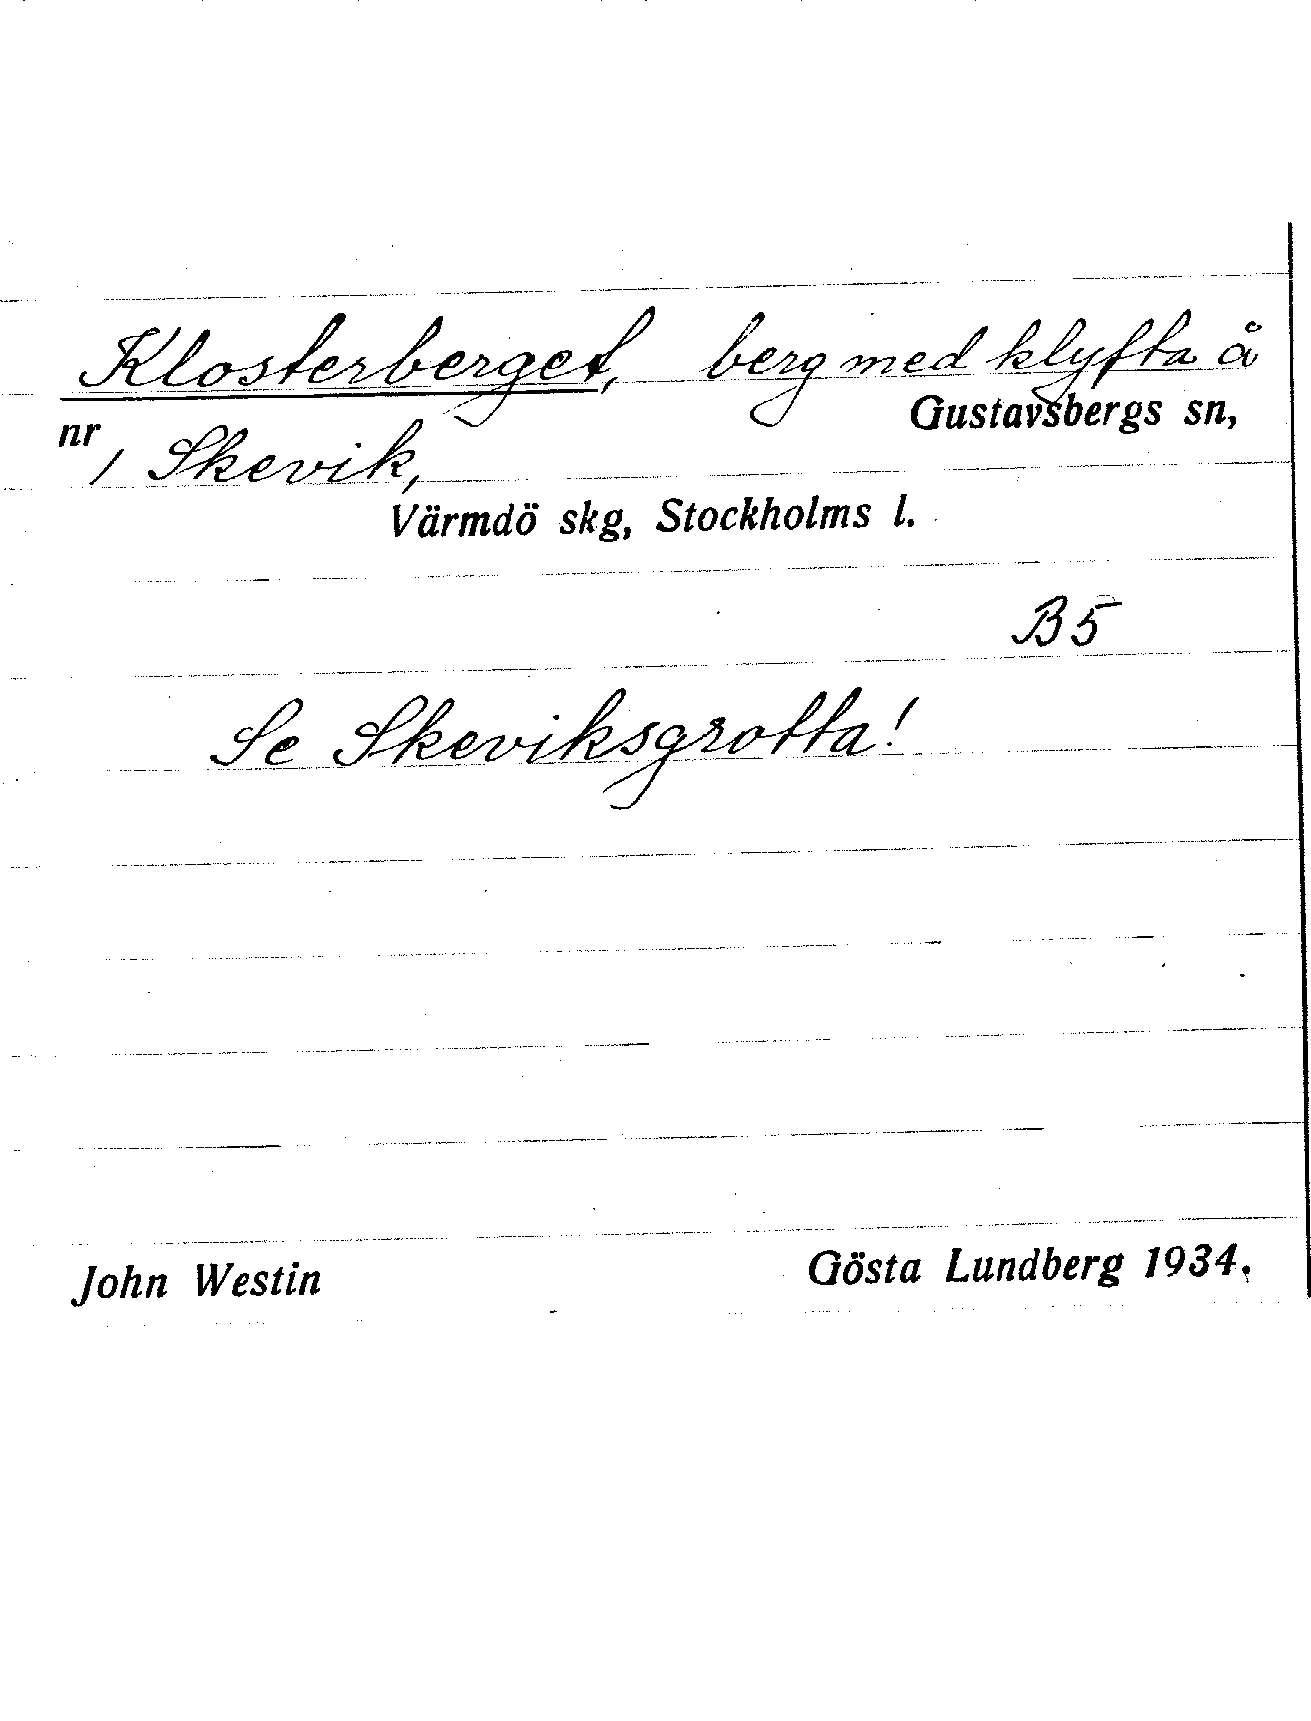 Klosterberget, berg med klyfta å
Gustavsbergs sn,
nr 1 Skevik,
Värmdö skg, Stockholms l.
B5
Se Skeviksgrotta!
John Westin Gösta Lundberg 1934.